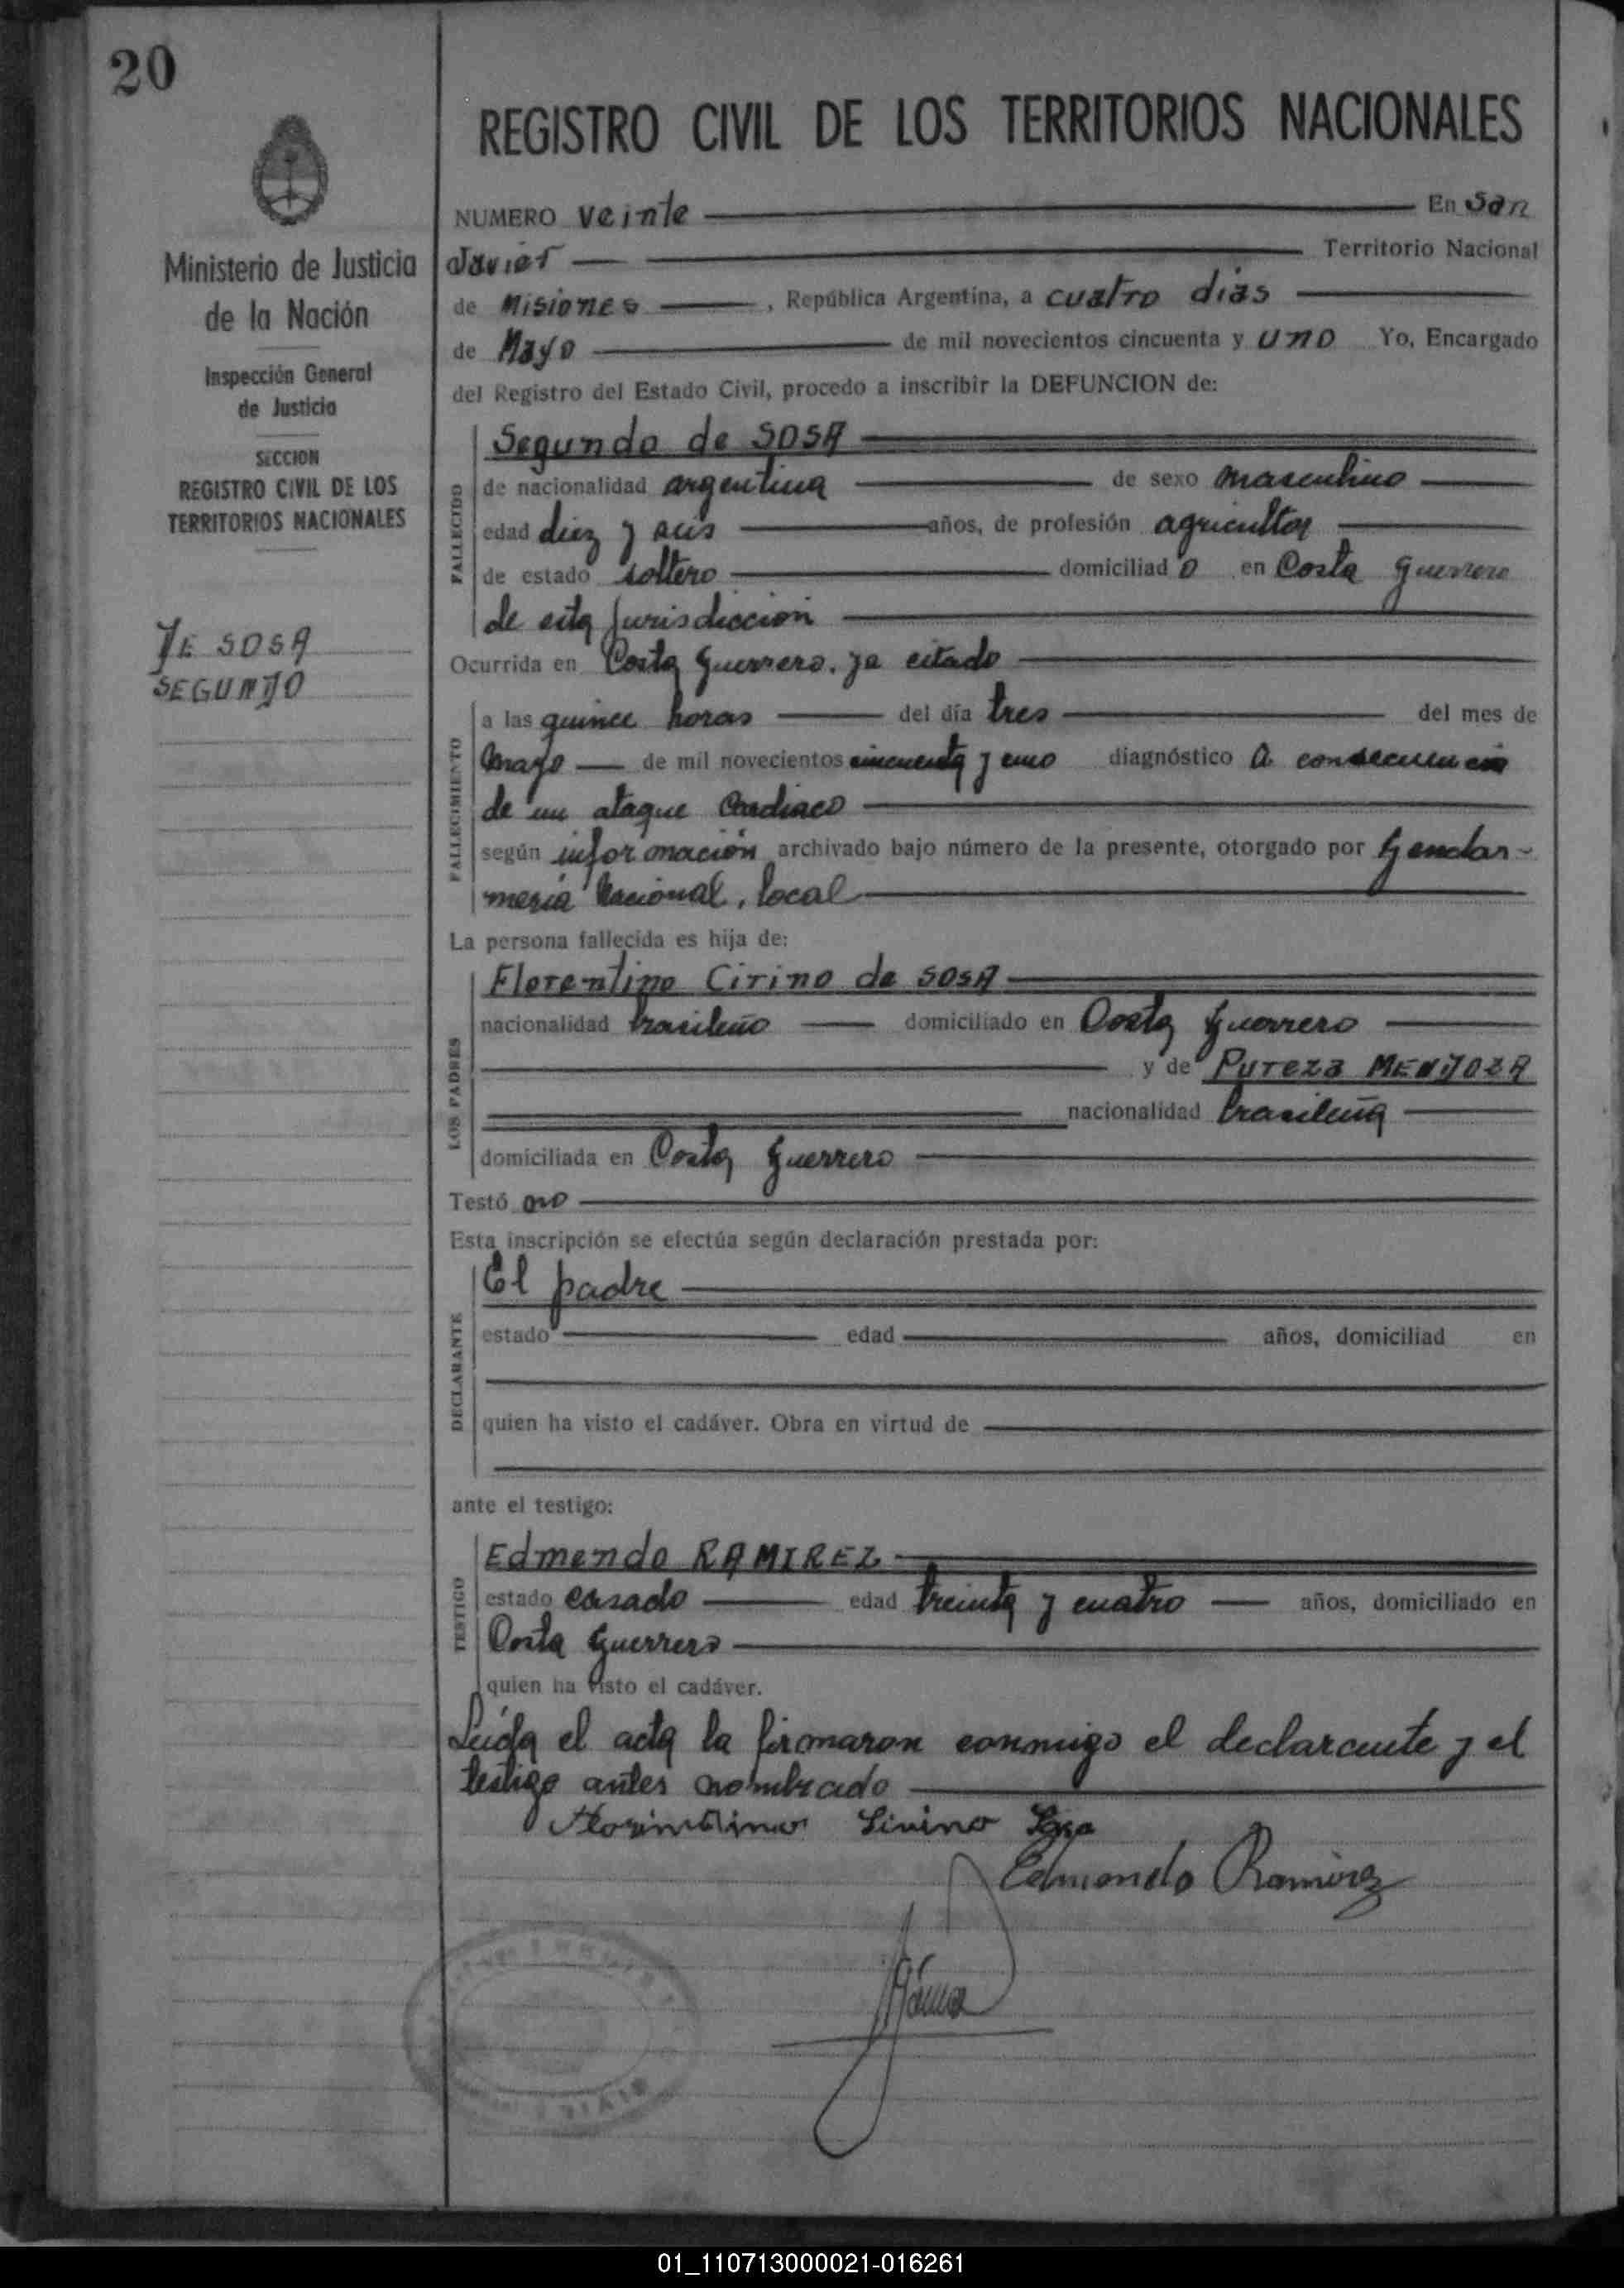 20
REGISTRO CIVIL DE LOS TERRITORIOS NACIONALES
Ministerio de Justicia
de la Nación
Inspección General
de Justicia
SECCION
REGISTRO CIVIL DE LOS
TERRITORIOS NACIONALES
DE SOSA
SEGUNDO
NUMERO veinte En San
Javier Territorio Nacional
de Misiones , República Argentina, a cuatro dias
de Mayo de mil novecientos cincuenta y uno Yo, Encargado
del Registro del Estado Civil, procedo a inscribir la DEFUNCION de:
FALLECIDO
Segundo de SOSA
de nacionalidad argentina de sexo masculino
edad diez y seis años, de profesión agricultor
de estado soltero domiciliad o en Costa Guerrero
de esta Jurisdicción
Ocurrida en Costa Guerrero, ya citado
FALLECIMIENTO
a las quince horas del día tres del mes de
mayo de mil novecientos cincuenta y uno diagnóstico A consecuencia
de un ataque Cardiaco
según información archivado bajo número de la presente, otorgado por Gendar-
mería Nacional, local
La persona fallecida es hija de:
LOS PADRES
Florentino Cirino de SOSA
nacionalidad brasileño domiciliado en Costa Guerrero
y de Pureza MENDOZA
nacionalidad brasileña
domiciliada en Costa Guerrero
Testó no
Esta inscripción se efectúa según declaración prestada por:
DECLARANTE
El padre
estado edad años, domiciliad en
quien ha visto el cadáver. Obra en virtud de
ante el testigo:
TESTIGO
Edmendo RAMIREZ
estado casado edad treinta y cuatro años, domiciliado en
Costa Guerrero
quien ha visto el cadáver.
Leída el acta la firmaron conmigo el declarante y el
testigo antes nombrado
Sirino Sosa
Edmondo Ramirez
01_110713000021-016261